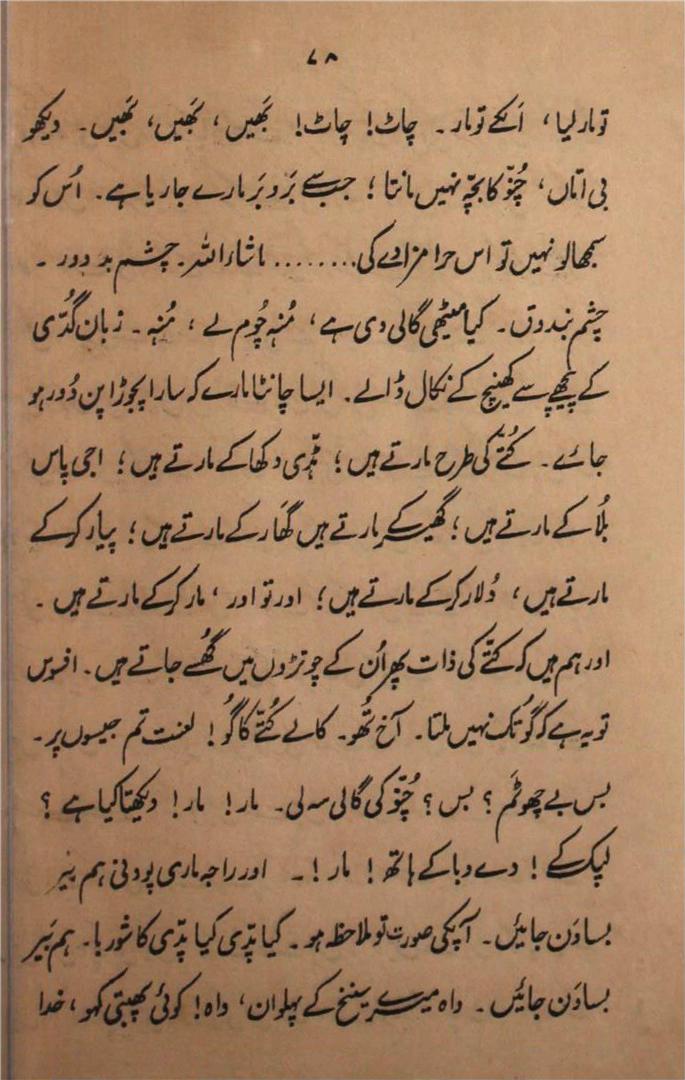 ۷۸
تو مار لیا، اَبکے تو مار۔ چاٹ! چاٹ! بَھیں، بَھیں، بَھیں۔ دیکھو
بی اماں، چُنّو کا بچّہ نہیں مانتا؛ جب سے بَرو بَر مارے جا ریا ہے۔ اُس کو
سمجھا لو نہیں تو اس حرامزادے کی........ ماشاء اللہ۔ چشم بد دور۔
چشم بندوق۔ کیا میٹھی گالی دی ہے، مُنہ چُوم لے، مُنہ۔ زبان گُدّی
کے پیچھے سے کھینچ کے نکال ڈالے۔ ایسا چانٹا مارے کہ سارا پجوڑا پن دُور ہو
جائے۔ کُتّے کی طرح مارتے ہیں؛ ہڈّی دکھا کے مارتے ہیں؛ اجی پاس
بُلا کے مارتے ہیں؛ گھیر کے مارتے ہیں گھار کے مارتے ہیں؛ پیار کر کے
مارتے ہیں، دُلار کر کے مارتے ہیں؛ اور تو اور، مار کر کے مارتے ہیں۔
اور ہم ہیں کہ کتّے کی ذات پھر اُن کے چوتڑوں میں گُھسے جاتے ہیں۔ افسوس
تو یہ ہے کہ گُو تک نہیں ملتا۔ آخ تُھو۔ کالے کُتّے کا گُو! لعنت تم جیسوں پر۔
بس بے چھوٹَم؟ بس؟ چُنّو کی گالی سہ لی۔ مار! مار! دیکھتا کیا ہے؟
لپک کے! دے دبا کے ہاتھ! مار!۔ اور راجہ ماری پودنی ہم بَیر
بساوَن جائیں۔ آپکی صورت تو ملاحظہ ہو۔ کیا پدّی کیا پدّی کا شوربا۔ ہم بَیر
بساوَن جائیں۔ واہ میرے سینخ کے پہلوان، واہ! کوئی پھبتی کہو، خدا